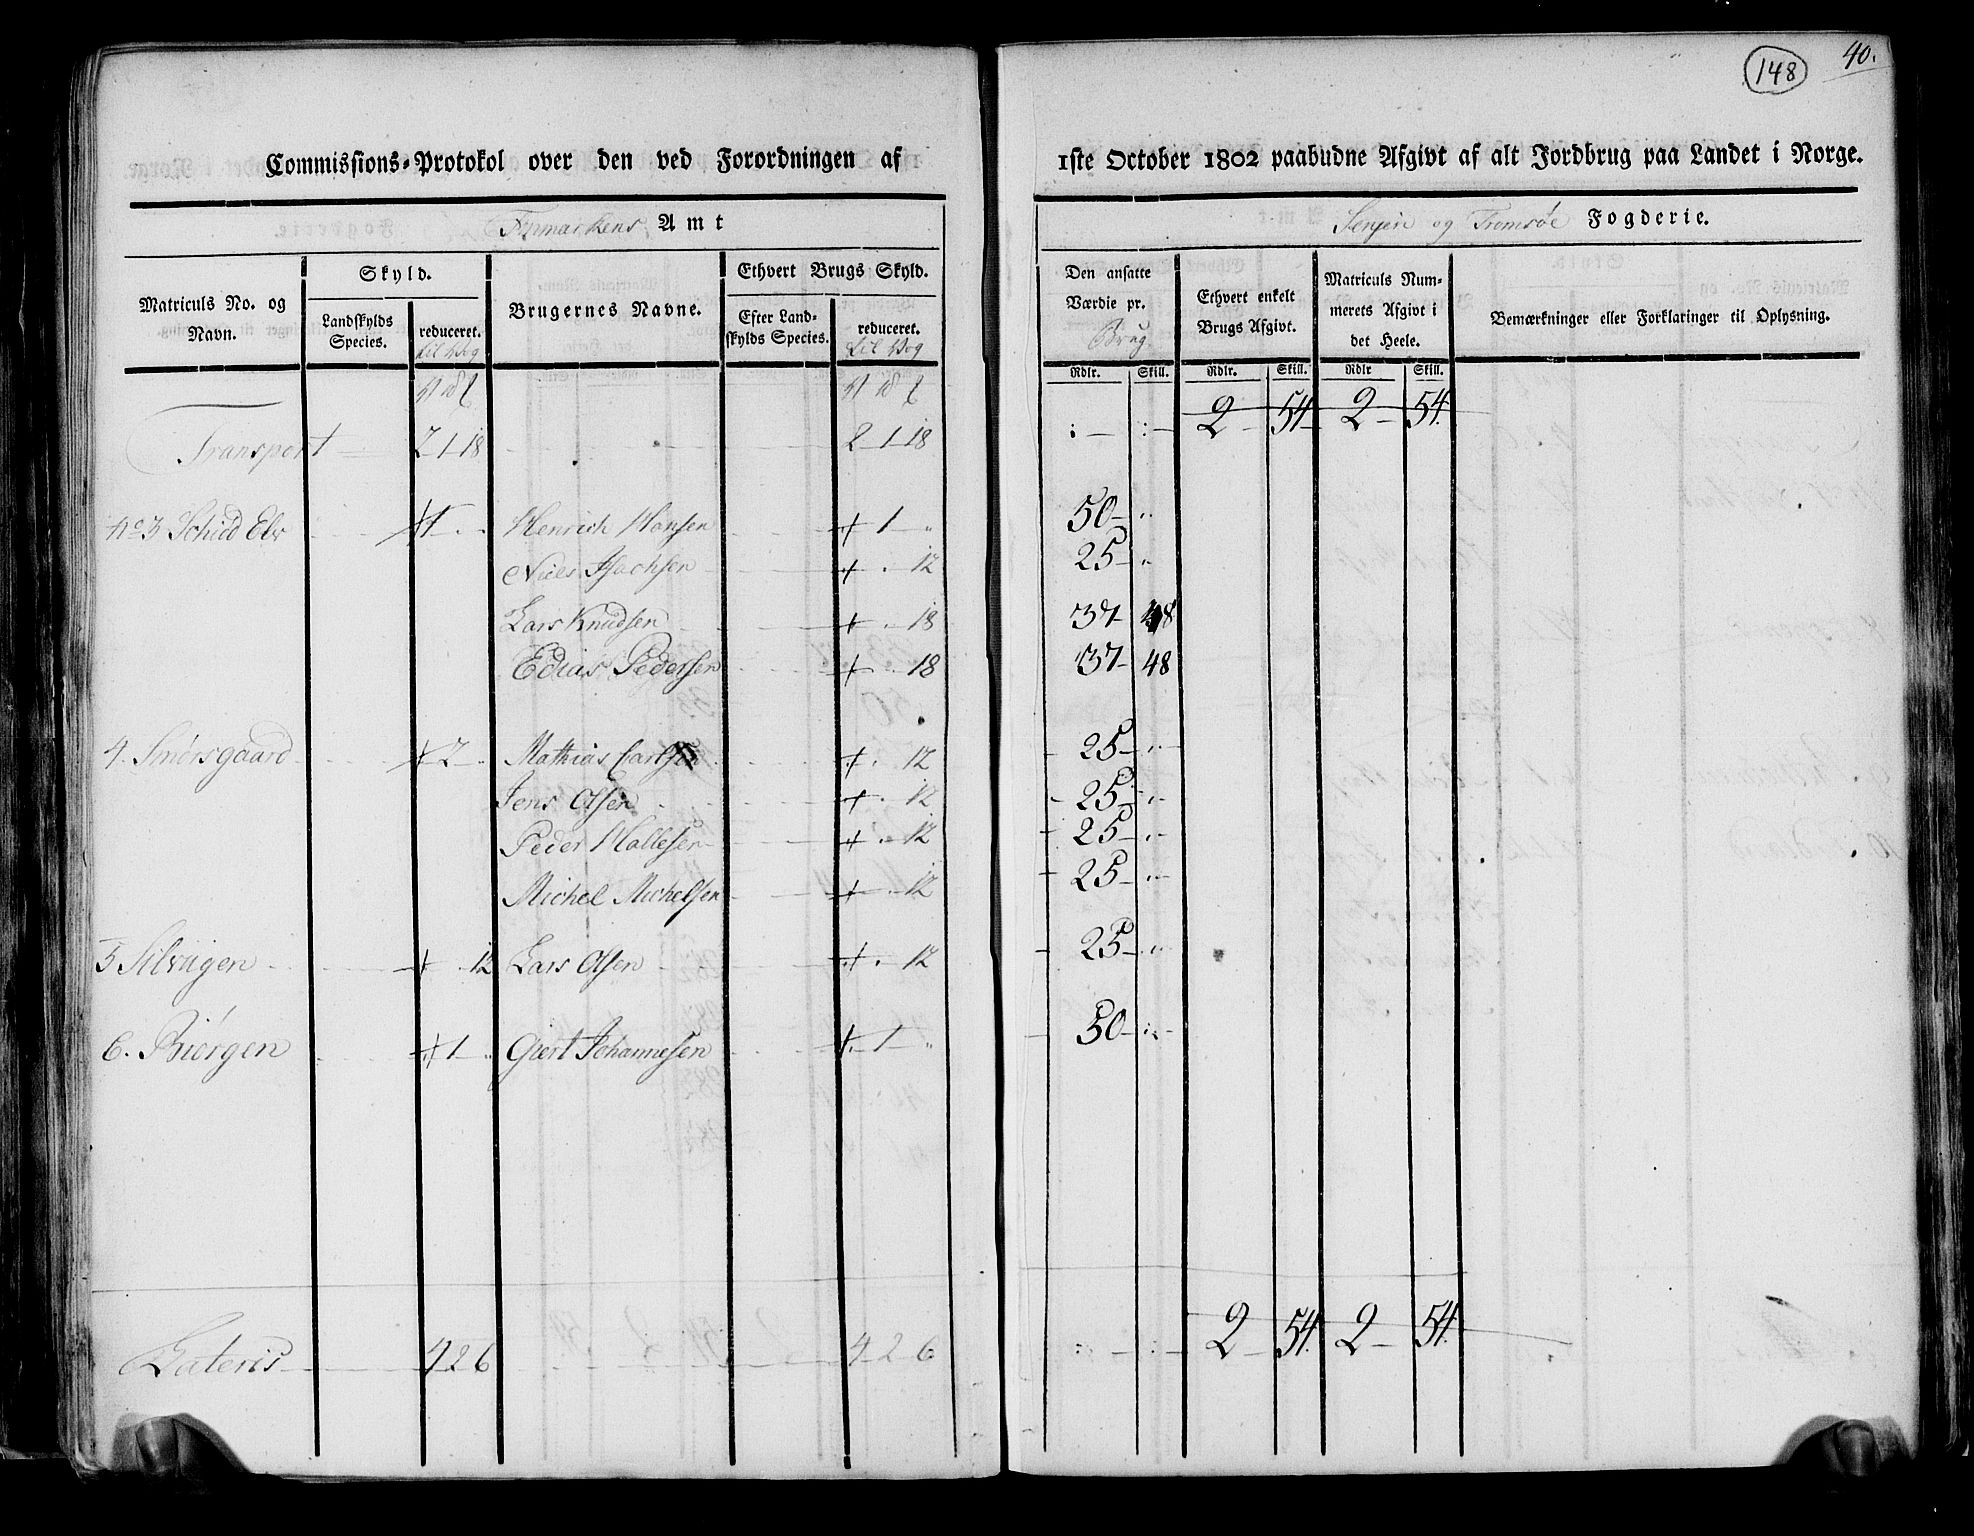 148
40.
Commissions-Protokol over den ved Forordningen af 1ste October 1802 paabudne Afgivt af alt Jordbrug paa Landet i Norge.
Finmarkens Amt
Senjen og Tromsøe Fogderie.
Matriculs No. og Navn.
Skyld.
Landskylds Species.
reduceret. til Wog
Brugernes Navne.
Ethvert Brugs Skyld.
Efter Landskylds Species.
reduceret. til Wog
Den ansatte Værdie pr. Brug
Ethvert enkelt Brugs Afgivt.
Matriculs Nummerets Afgivt i det Heele.
Bemærkninger eller Forklaringer til Oplysning.
Rdlr. Skill. Rdlr. Skill. Rdlr Skill.
Transport 2 1 18 2 1 18 : : 2 54 2 54.
No 3 Schild Elv 1 " Henrich Hansen 1 " 50 "
Niels Isachsen " 12 25 "
Lars Knudsen " 18 37 48
Edias Pedersen " 18 37 48
4. Smørsgaard 2 " Mathias Carlsen " 12 25 "
Jens Olsen " 12 25 "
Peder Hallesen " 12 25 "
Michel Michelsen " 12 25 "
5 Silvigen " 12 Lars Olsen " 12 25 "
6. Biørgen 1 " Giert Johannesen 1 " 50 "
Lateris 4 2 6 4 2 6 : : 2 54. 2 54.